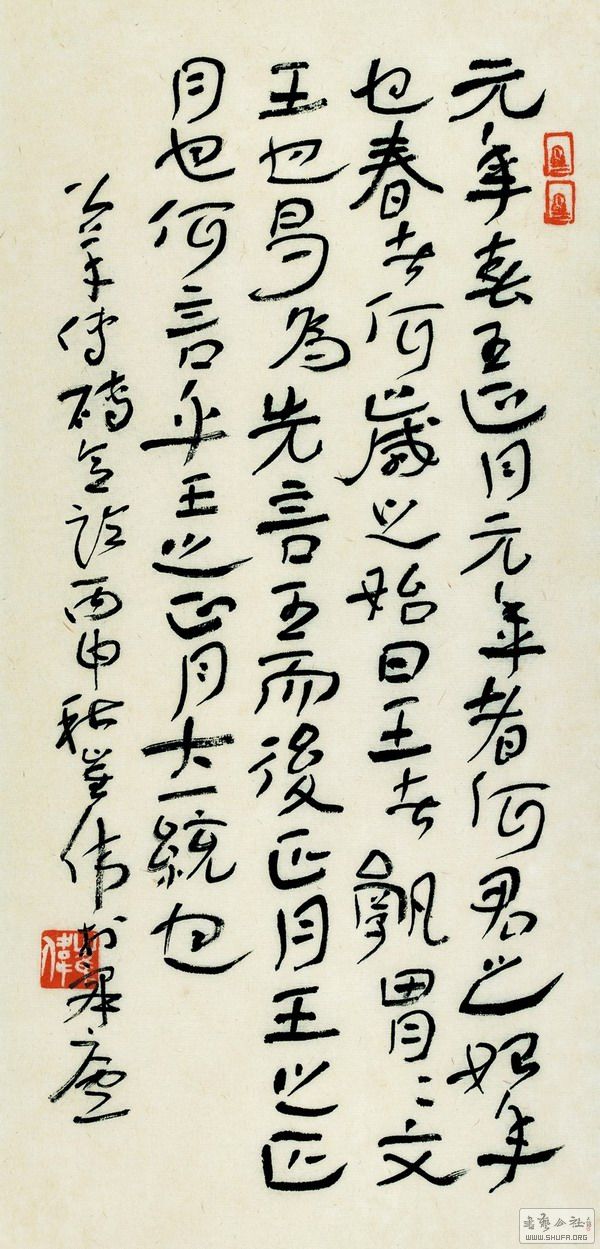 元年春王正月元年者何君之始年
也春者何歲之始曰王者孰胃〻文
王也曷為先言王而後正月王之正
月也何言乎王之正月大一統也
公羊傳磚丙申秋崔偉於廬
書藝公社
WWW.SHUFA.ORG